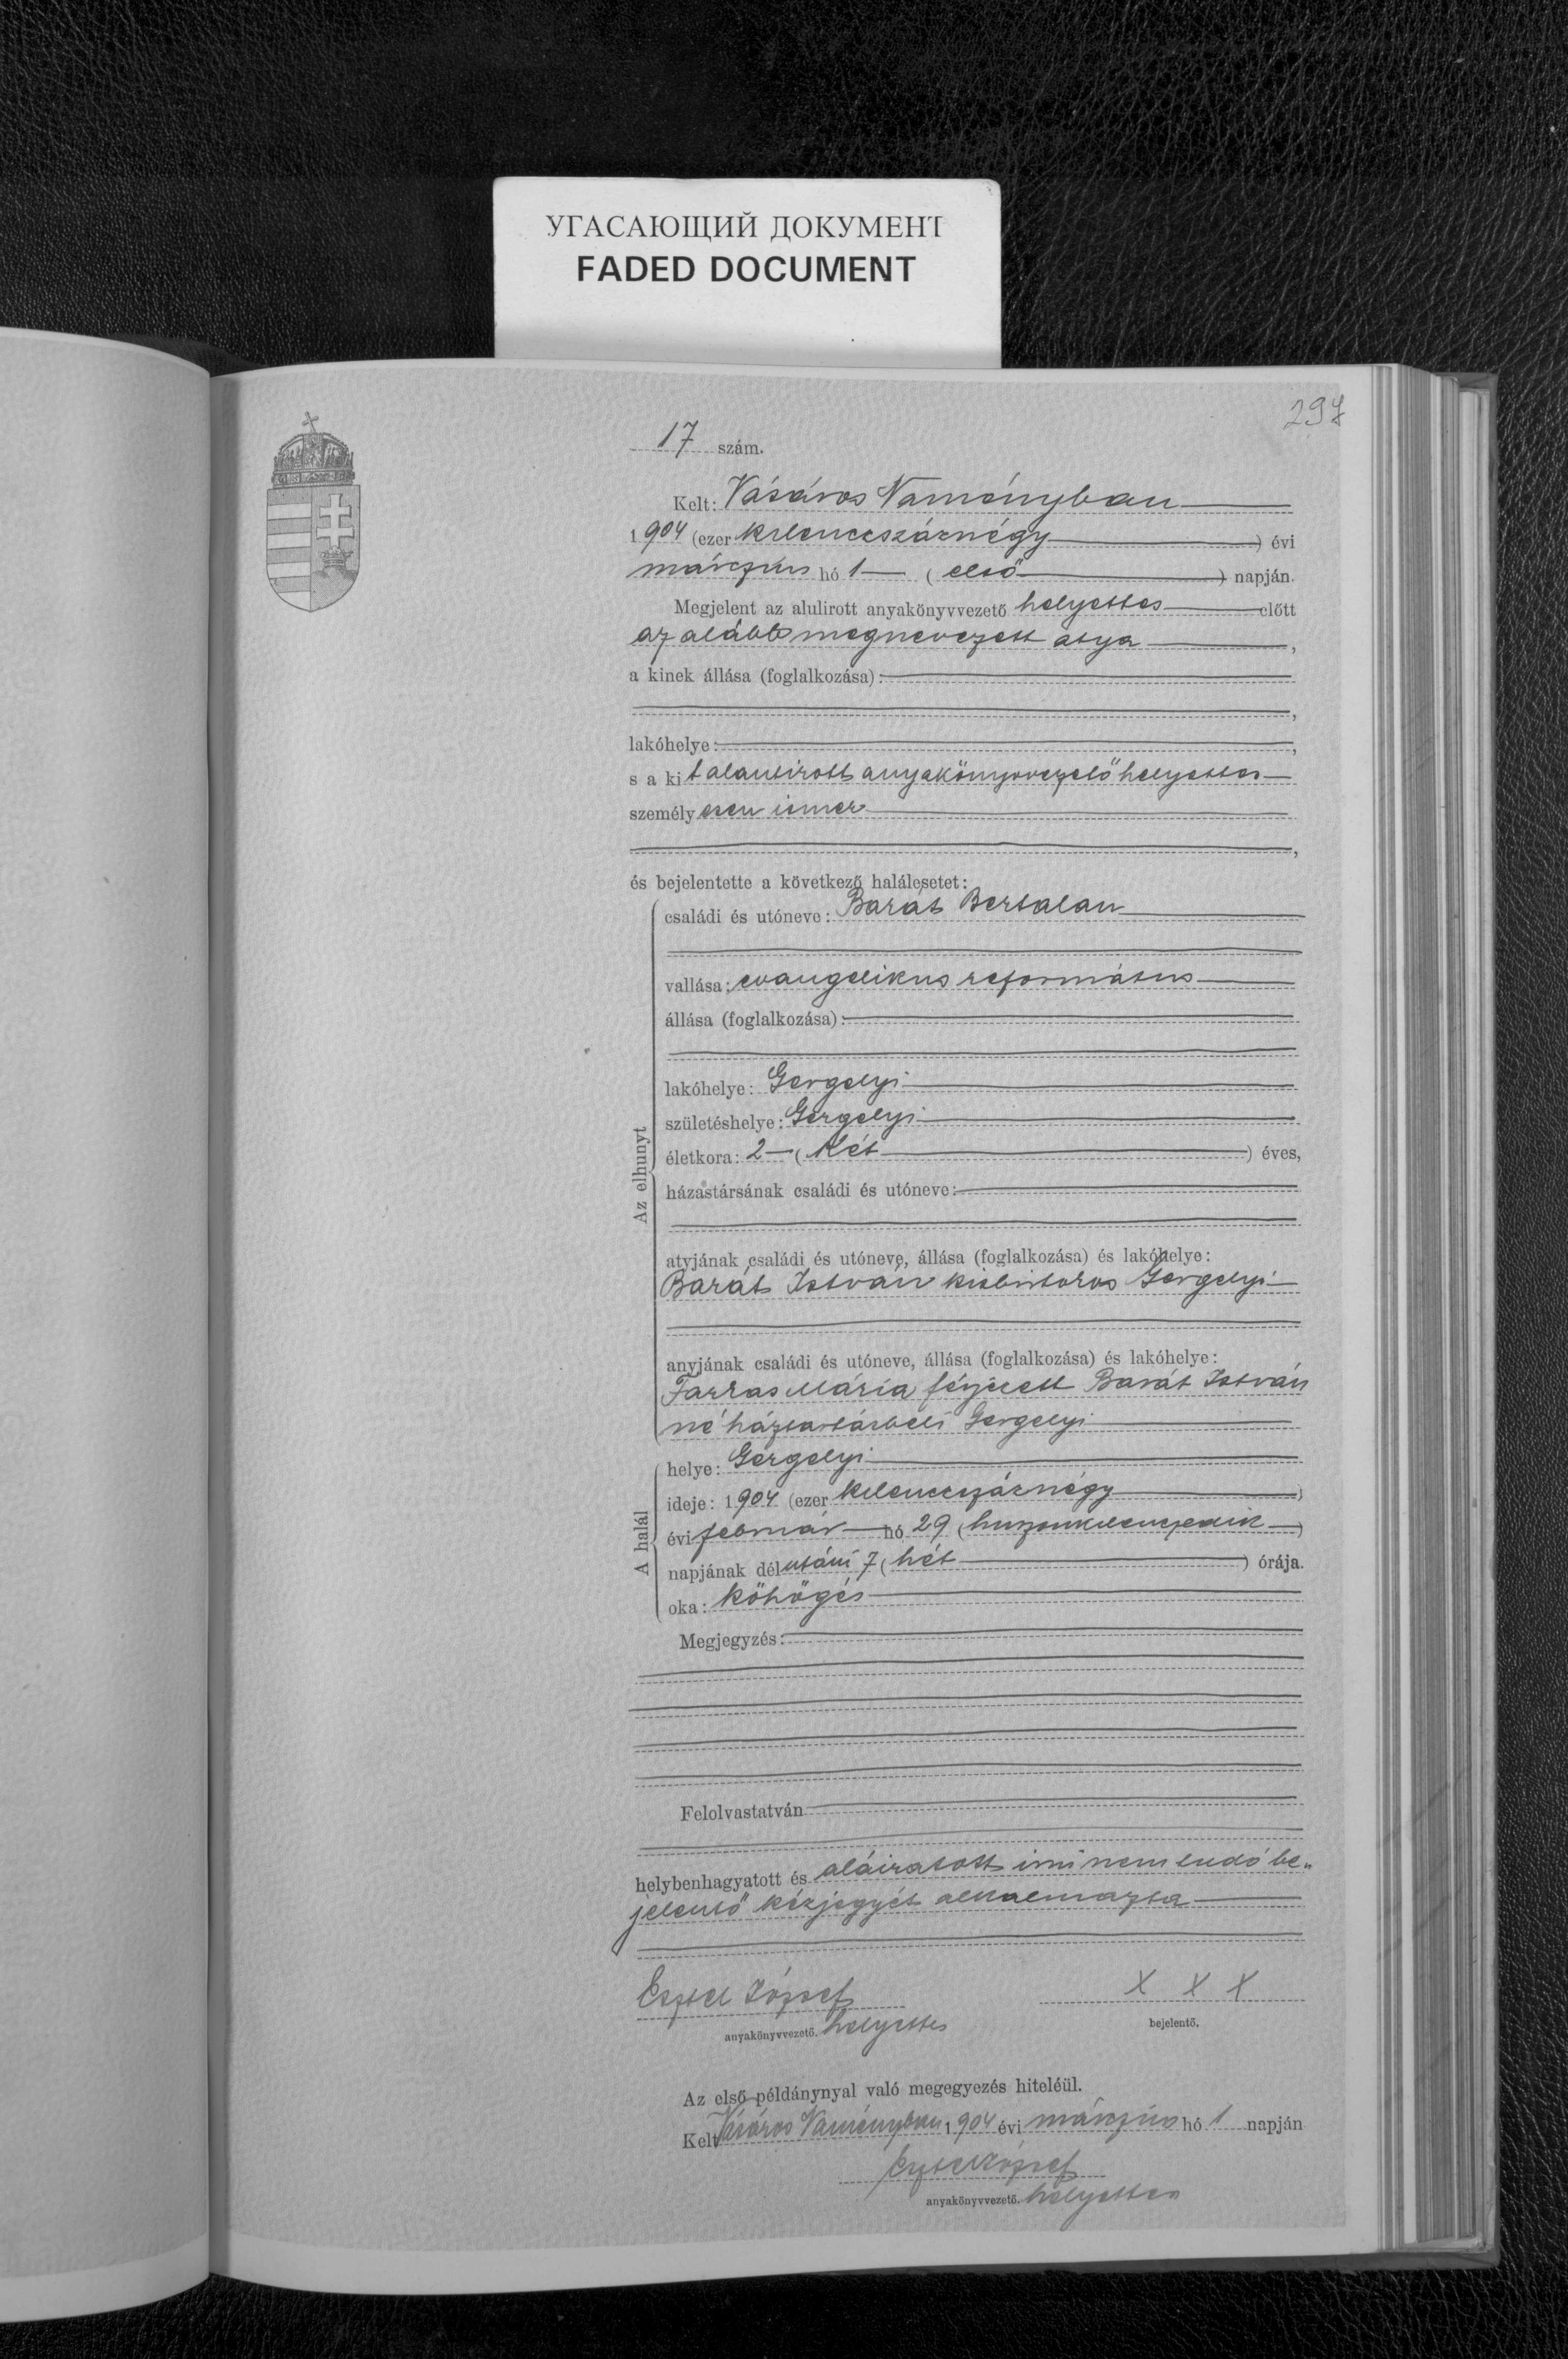 УГАСАЮЩИЙ ДОКУМЕНТ
FADED DOCUMENT
297
17 szám.
Kelt: Vásáros Naményban
1904 (ezer kilenczszáznégy) évi
márczius hó 1 (első) napján.
Megjelent az alulirott anyakönyvvezető helyettes előtt
az alább megnevezett atya,
a kinek állása (foglalkozása):
lakóhelye:
s a kit alantirott anyakönyvvezető helyettes
személyesen ismer
és bejelentette a következő halálesetet:
Az elhunyt
családi és utóneve: Barát Bertalan
vallása: evangelikus református
állása (foglalkozása):
lakóhelye: Gergelyi
születéshelye: Gergelyi
életkora: 2 (két) éves,
házastársának családi és utóneve:
atyjának családi és utóneve, állása (foglalkozása) és lakóhelye:
Barát István kisbirtokos Gergelyi
anyjának családi és utóneve, állása (foglalkozása) és lakóhelye:
Farkas Mária férjezett Barát István
né háztartásbeli Gergelyi
A halál
helye: Gergelyi
ideje: 1904 (ezer kilenczszáznégy)
évi február hó 29 (huszonkilenczedik)
napjának délutáni 7 (hét) órája.
oka: köhögés
Megjegyzés:
Felolvastatván
helybenhagyatott és aláiratott irni nem tudó be„
jelentő kézjegyét alkalmazta
József X X X
anyakönyvvezető. helyettes bejelentő.
Az első példánynyal való megegyezés hiteléül.
Kelt Vásáros Naményban 1904 évi márczius hó 1 napján
József
anyakönyvvezető. helyettes